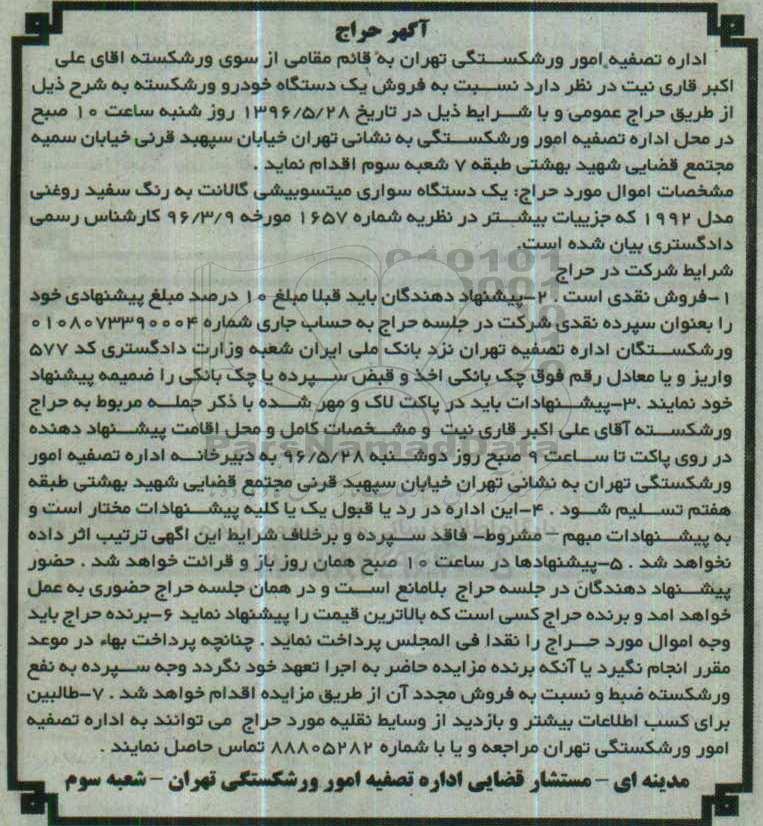 آگهر حراج
اداره تصفیه امور ورشکستگی تهران به قائم مقامی از سوی ورشکسته اقای علی
اکبر قاری نیت در نظر دارد نسبت به فروش یک دستگاه خودرو ورشکسته به شرح ذیل
از طریق حراج عمومی و با شرایط ذیل در تاریخ ۱۳۹۶/۵/۲۸ روز شنبه ساعت ۱۰ صبح
در محل اداره تصفیه امور ورشکستگی به نشانی تهران خیابان سپهبد قرنی خیابان سمیه
مجتمع قضایی شهید بهشتی طبقه ۷ شعبه سوم اقدام نماید .
مشخصات اموال مورد حراج: یک دستگاه سواری میتسوبیشی گالانت به رنگ سفید روغنی
مدل ۱۹۹۲ که جزییات بیشتر در نظریه شماره ۱۶۵۷ مورخه ۹۶/۳/۹ کارشناس رسمی
دادگستری بیان شده است.
شرایط شرکت در حراج
۱-فروش نقدی است . ۲-پیشنهاد دهندگان باید قبلا مبلغ ۱۰ درصد مبلغ پیشنهادی خود
را بعنوان سپرده نقدی شرکت در جلسه حراج به حساب جاری شماره ۰۱۰۸۰۷۳۳۹۰۰۰۴
ورشکستگان اداره تصفیه تهران نزد بانک ملی ایران شعبه وزارت دادگستری کد ۵۷۷
واریز و یا معادل رقم فوق چک بانکی اخذ و قبض سپرده یا چک بانکی را ضمیمه پیشنهاد
خود نمایند .۳-پیشنهادات باید در پاکت لاک و مهر شده با ذکر جمله مربوط به حراج
ورشکسته آقای علی اکبر قاری نیت و مشخصات کامل و محل اقامت پیشنهاد دهنده
در روی پاکت تا ساعت ۹ صبح روز دوشنبه ۹۶/۵/۲۸ به دبیرخانه اداره تصفیه امور
ورشکستگی تهران به نشانی تهران خیابان سپهبد قرنی مجتمع قضایی شهید بهشتی طبقه
هفتم تسلیم شود . ۴-این اداره در رد یا قبول یک یا کلیه پیشنهادات مختار است و
به پیشنهادات مبهم – مشروط- فاقد سپرده و برخلاف شرایط این اگهی ترتیب اثر داده
نخواهد شد . ۵-پیشنهادها در ساعت ۱۰ صبح همان روز باز و قرائت خواهد شد . حضور
پیشنهاد دهندگان در جلسه حراج بلامانع است و در همان جلسه حراج حضوری به عمل
خواهد امد و برنده حراج کسی است که بالاترین قیمت را پیشنهاد نماید ۶-برنده حراج باید
وجه اموال مورد حراج را نقدا فی المجلس پرداخت نماید . چنانچه پرداخت بهاء در موعد
مقرر انجام نگیرد یا آنکه برنده مزایده حاضر به اجرا تعهد خود نگردد وجه سپرده به نفع
ورشکسته ضبط و نسبت به فروش مجدد آن از طریق مزایده اقدام خواهد شد . ۷-طالبین
برای کسب اطلاعات بیشتر و بازدید از وسایط نقلیه مورد حراج می توانند به اداره تصفیه
امور ورشکستگی تهران مراجعه و یا با شماره ۸۸۸۰۵۲۸۲ تماس حاصل نمایند .
مدینه ای – مستشار قضایی اداره تصفیه امور ورشکستگی تهران – شعبه سوم
ParsNamadData